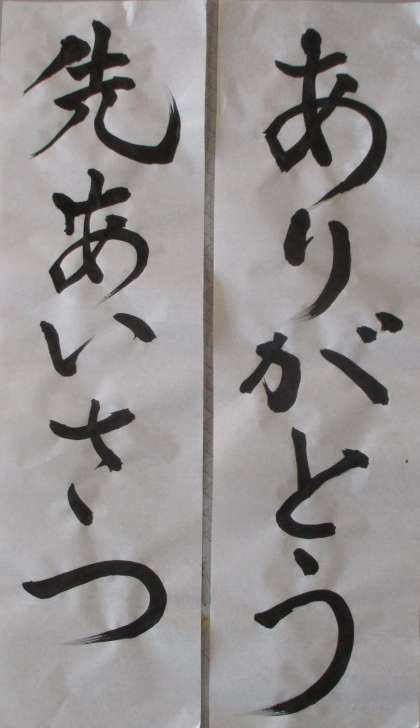 ありがとう
先あいさつ